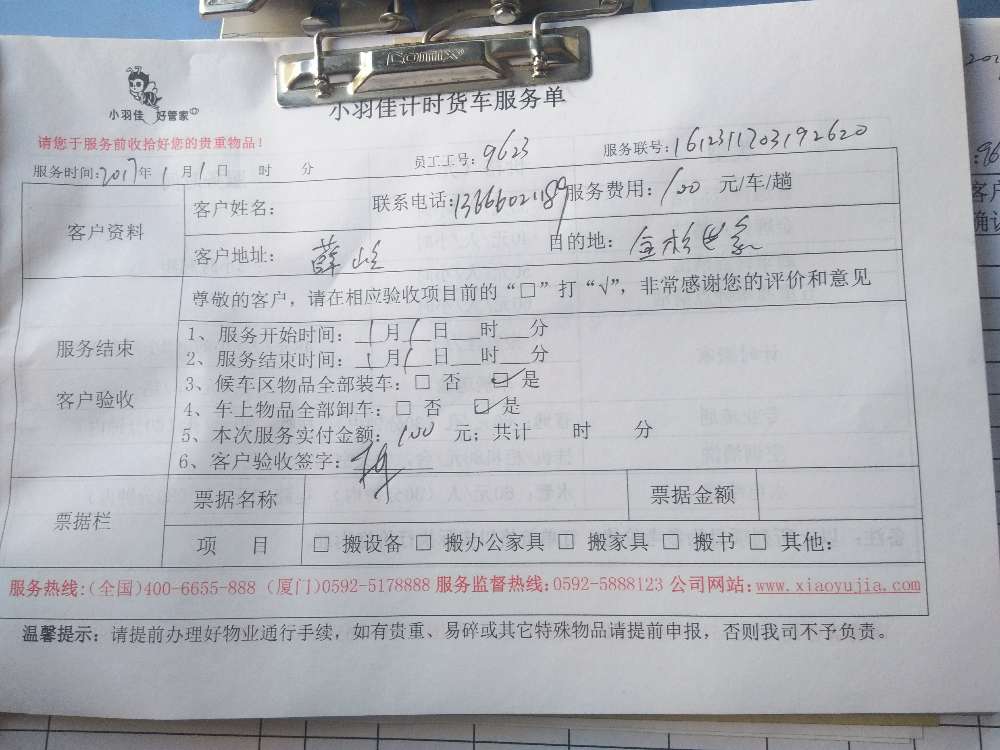 COMIX
小羽佳 好管家
小羽佳计时货车服务单
请您于服务前收拾好您的贵重物品！
服务时间:2017年1月1日 时 分 员工工号:9623 服务联号:1612311703192620
客户资料
客户姓名： 联系电话:13666021189 服务费用:100 元/车/趟
客户地址： 薛岭 目的地：
尊敬的客户，请在相应验收项目前的“□”打“√”，非常感谢您的评价和意见
服务结束
客户验收
1、服务开始时间：1月1日 时 分
2、服务结束时间：1月1日 时 分
3、候车区物品全部装车：□ 否 ☑ 是
4、车上物品全部卸车：□ 否 ☑ 是
5、本次服务实付金额：100 元；共计 时 分
6、客户验收签字：
票据栏
票据名称 票据金额
项 目 □ 搬设备 □ 搬办公家具 □ 搬家具 □ 搬书 □ 其他：
服务热线:(全国)400-6655-888 (厦门)0592-5178888 服务监督热线:0592-5888123 公司网站:www.xiaoyujia.com
温馨提示：请提前办理好物业通行手续，如有贵重、易碎或其它特殊物品请提前申报，否则我司不予负责。